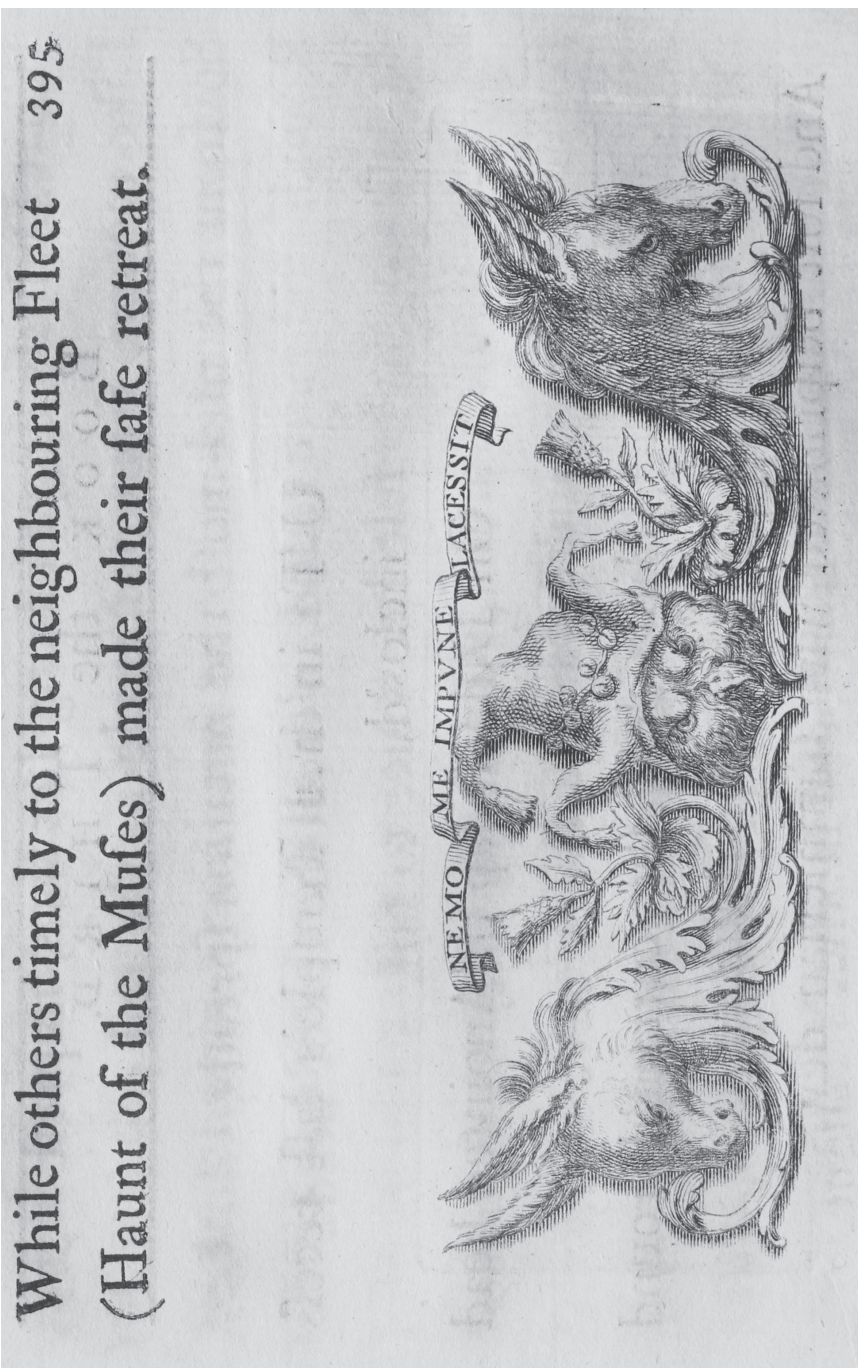 While others timely to the neighbouring Fleet 395
(Haunt of the Muſes) made their ſafe retreat.
NEMO ME IMPVNE LACESSIT